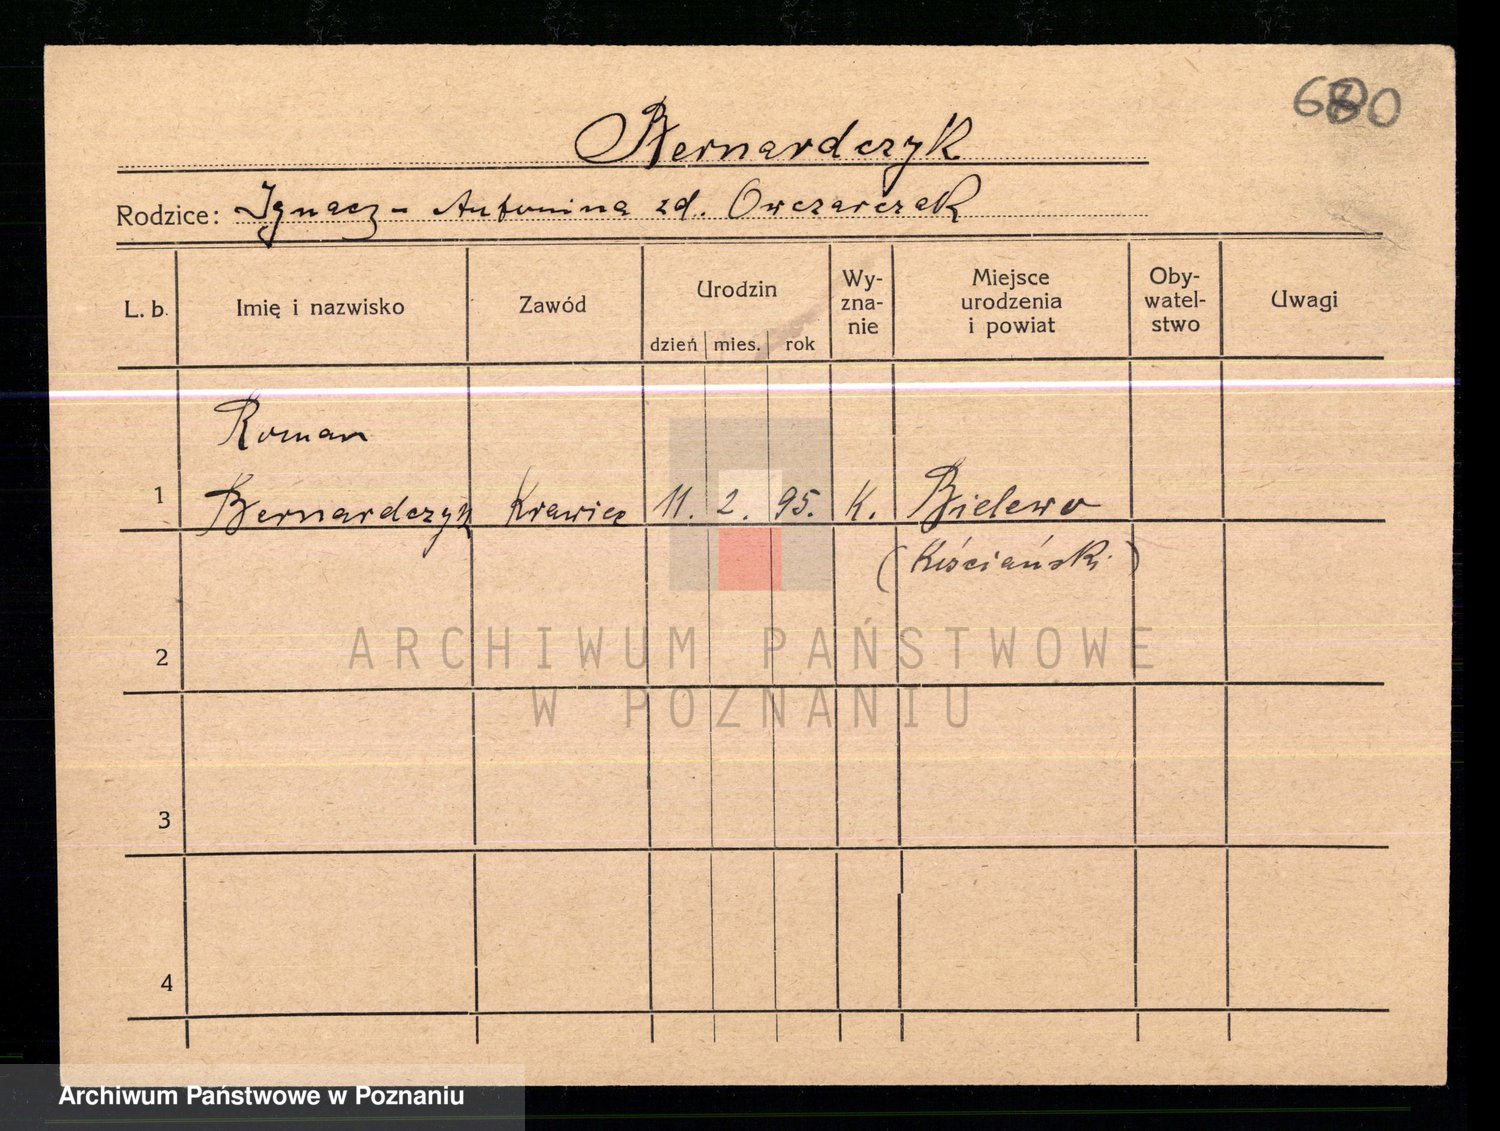 Bernardczyk
Rodzice: Ignacz - Antonina zd. Owczarczak
L. b.
Imię i nazwisko
Zawód
Urodzin
dzień mies. rok
Wy-
zna-
nie
Miejsce
urodzenia
i powiat
Oby-
watel-
stwo
Uwagi
Roman
1 Bernardczyk Krawiec 11. 2. 95. K. Bielewo
(Kościański)
2
ARCHIWUM PAŃSTWOWE
W POZNANIU
3
4
Archiwum Państwowe w Poznaniu